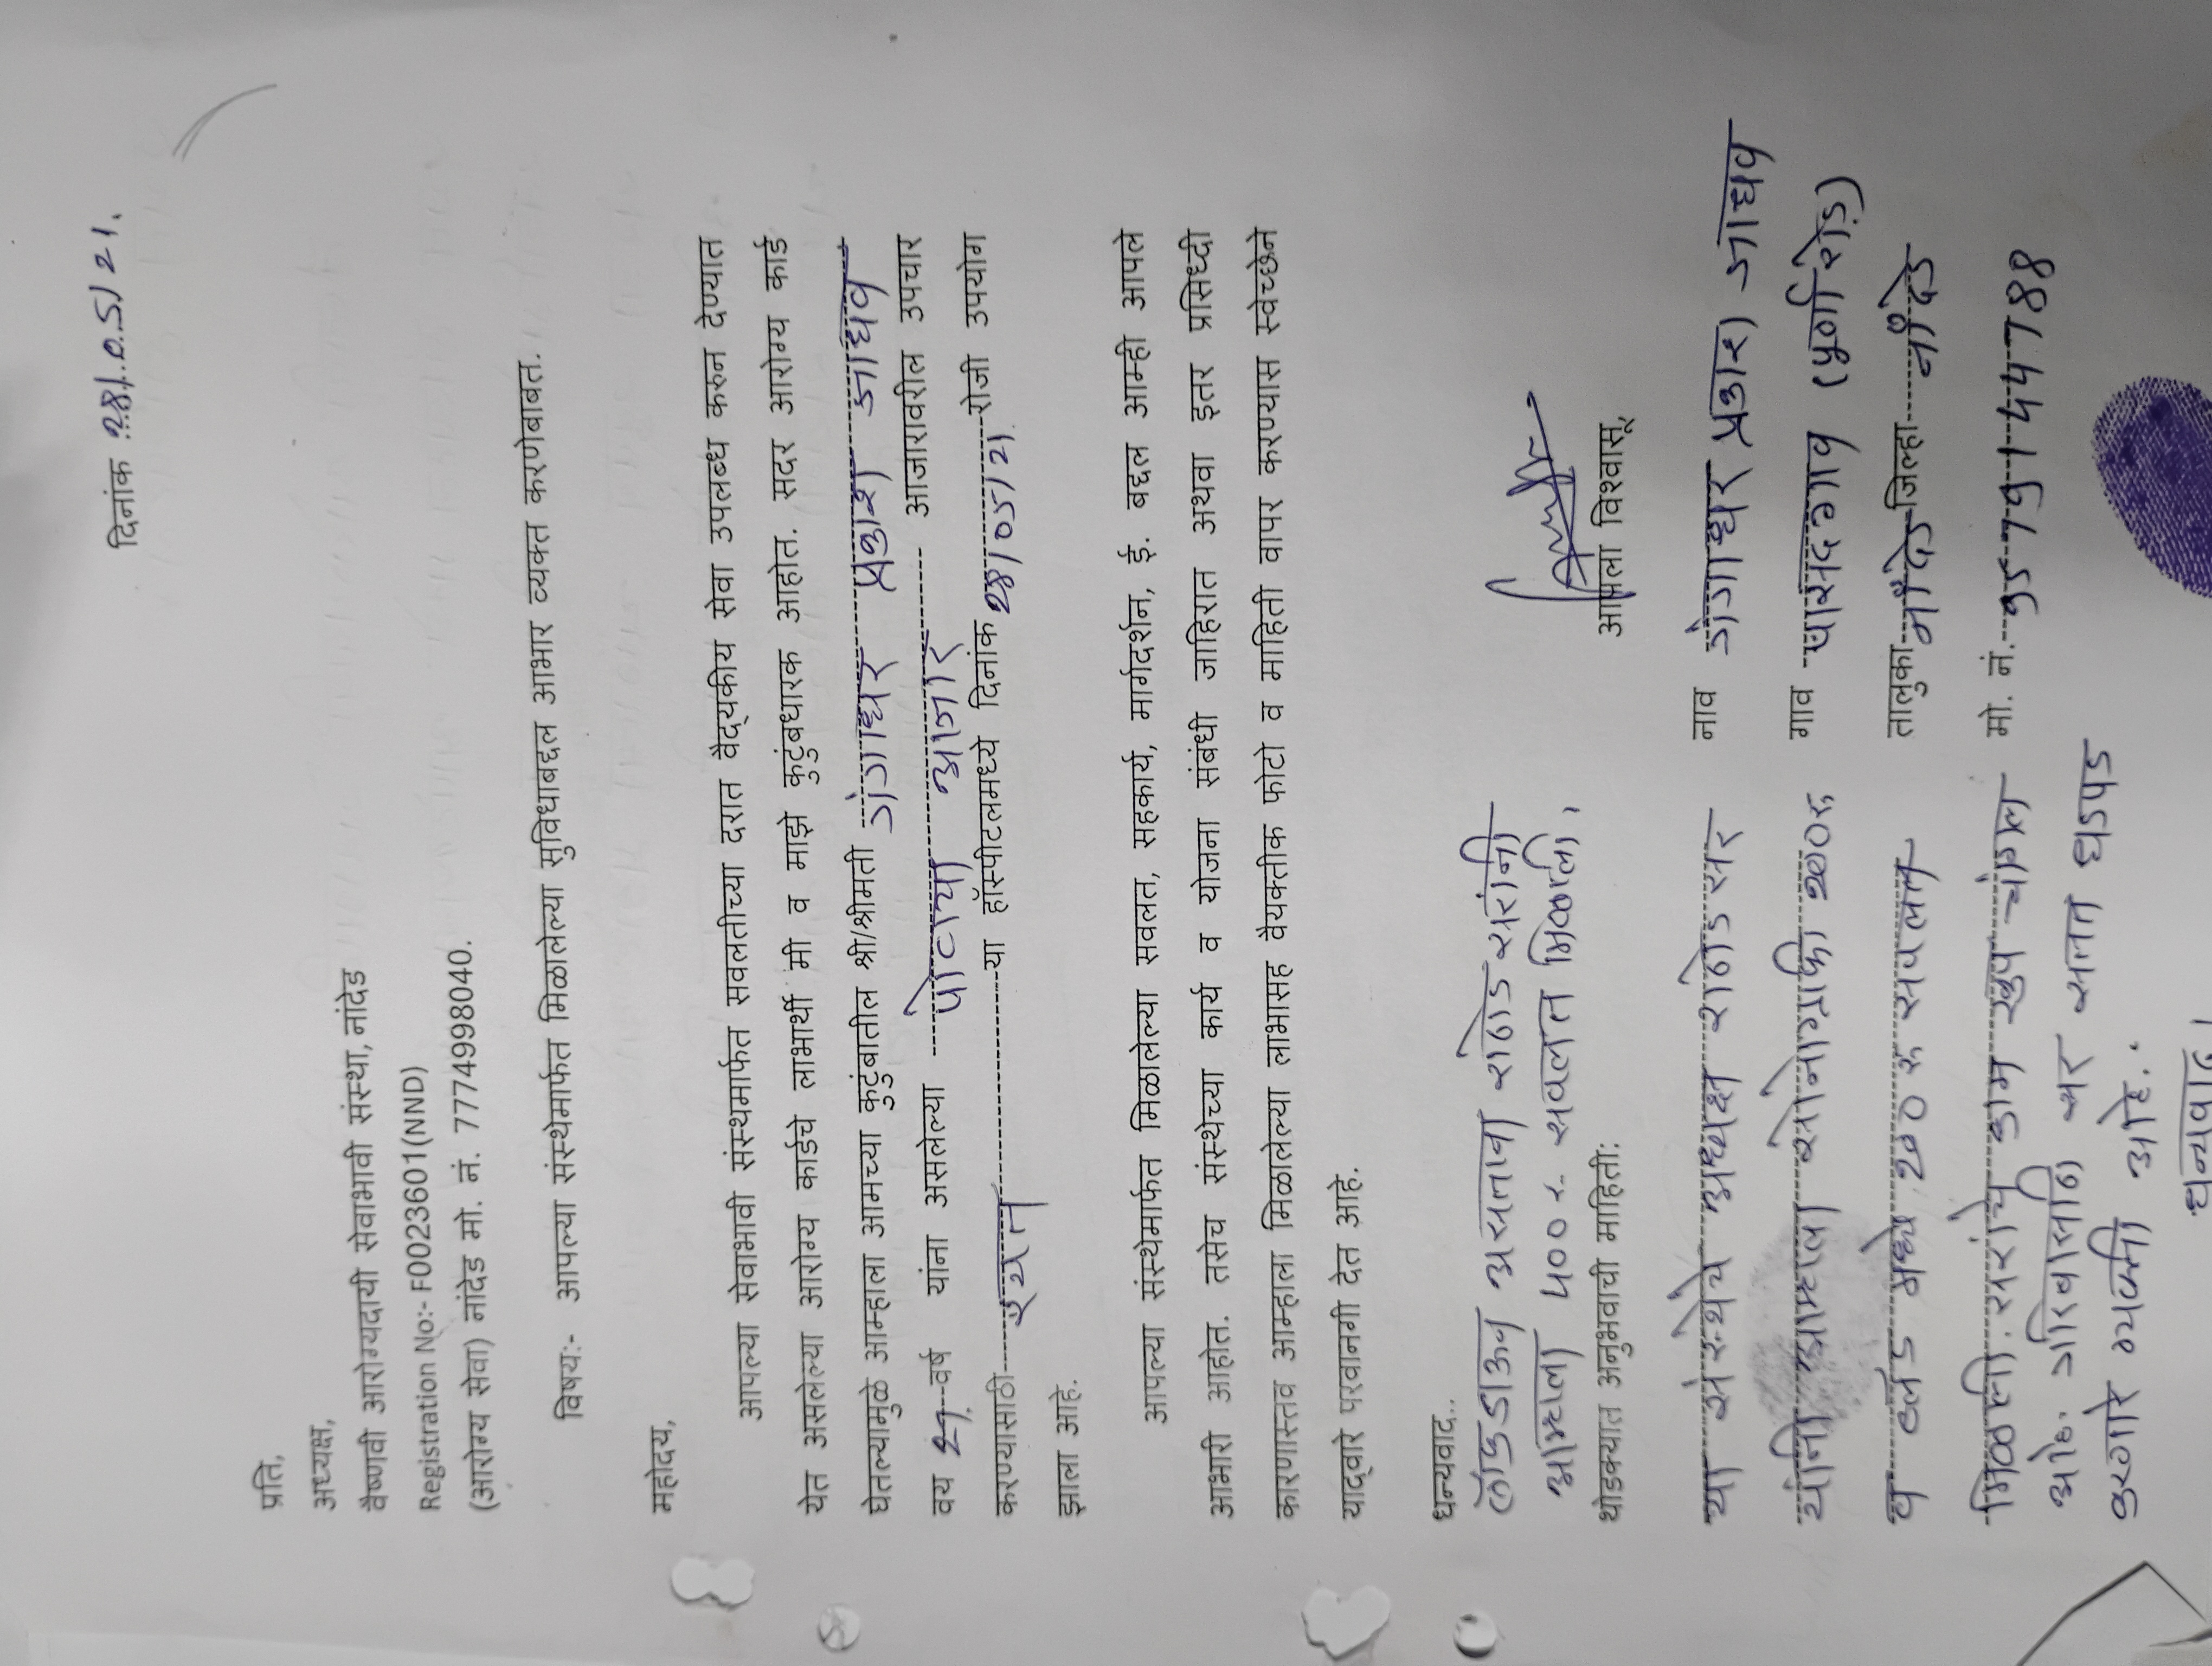 दिनांक २8/.०.5/ 21.
प्रति,
अध्यक्ष,
वैष्णवी आरोग्यदायी सेवाभावी संस्था, नांदेड
Registration No:- F0023601(NND)
(आरोग्य सेवा) नांदेड मो. नं. 7774998040.
विषय:- आपल्या संस्थेमार्फत मिळालेल्या सुविधाबद्दल आभार व्यक्त करणेबाबत.
महोदय,
आपल्या सेवाभावी संस्थमार्फत सवलतीच्या दरात वैद्यकीय सेवा उपलब्ध करून देण्यात
येत असलेल्या आरोग्य कार्डचे लाभार्थी मी व माझे कुटुंबधारक आहोत. सदर आरोग्य कार्ड
घेतल्यामुळे आम्हाला आमच्या कुटुंबातील श्री/श्रीमती गंगाधर प्रकाश जाधव
वय 27 वर्ष यांना असलेल्या पोटाचा आजार आजारावरील उपचार
करण्यासाठी या हॉस्पीटलमध्ये दिनांक 28/05/21 रोजी उपयोग
झाला आहे.
आपल्या संस्थेमार्फत मिळालेल्या सवलत, सहकार्य, मार्गदर्शन, ई. बद्दल आम्ही आपले
आभारी आहोत. तसेच संस्थेच्या कार्य व योजना संबंधी जाहिरात अथवा इतर प्रसिध्दी
कारणास्तव आम्हाला मिळालेल्या लाभासह वैयक्तीक फोटो व माहिती वापर करण्यास स्वेच्छेने
याद्वारे परवानगी देत आहे.
धन्यवाद..
लॉकडाऊन असताना राठोड सरांनी
आम्हाला ५०० रु. सवलत मिळाली.
आपला विश्वासू,
थोडक्यात अनुभवाची माहिती:
नाव गंगाधर प्रकाश जाधव
या संस्थेचे अध्यक्ष राठोड सर
गाव पासदगाव (पुर्णा रोड)
यांनी आम्हाला सोनोग्राफी 200 रु
तालुका नांदेड जिल्हा नांदेड
व ब्लड मध्ये 20 रु सवलत
मो. नं. 9579144788
मिळाली. सरांचे काम खुप चांगल
आहे. गरिबासाठी सर सतत धडपड
करणारे व्यक्ती आहे.
धन्यवाद।